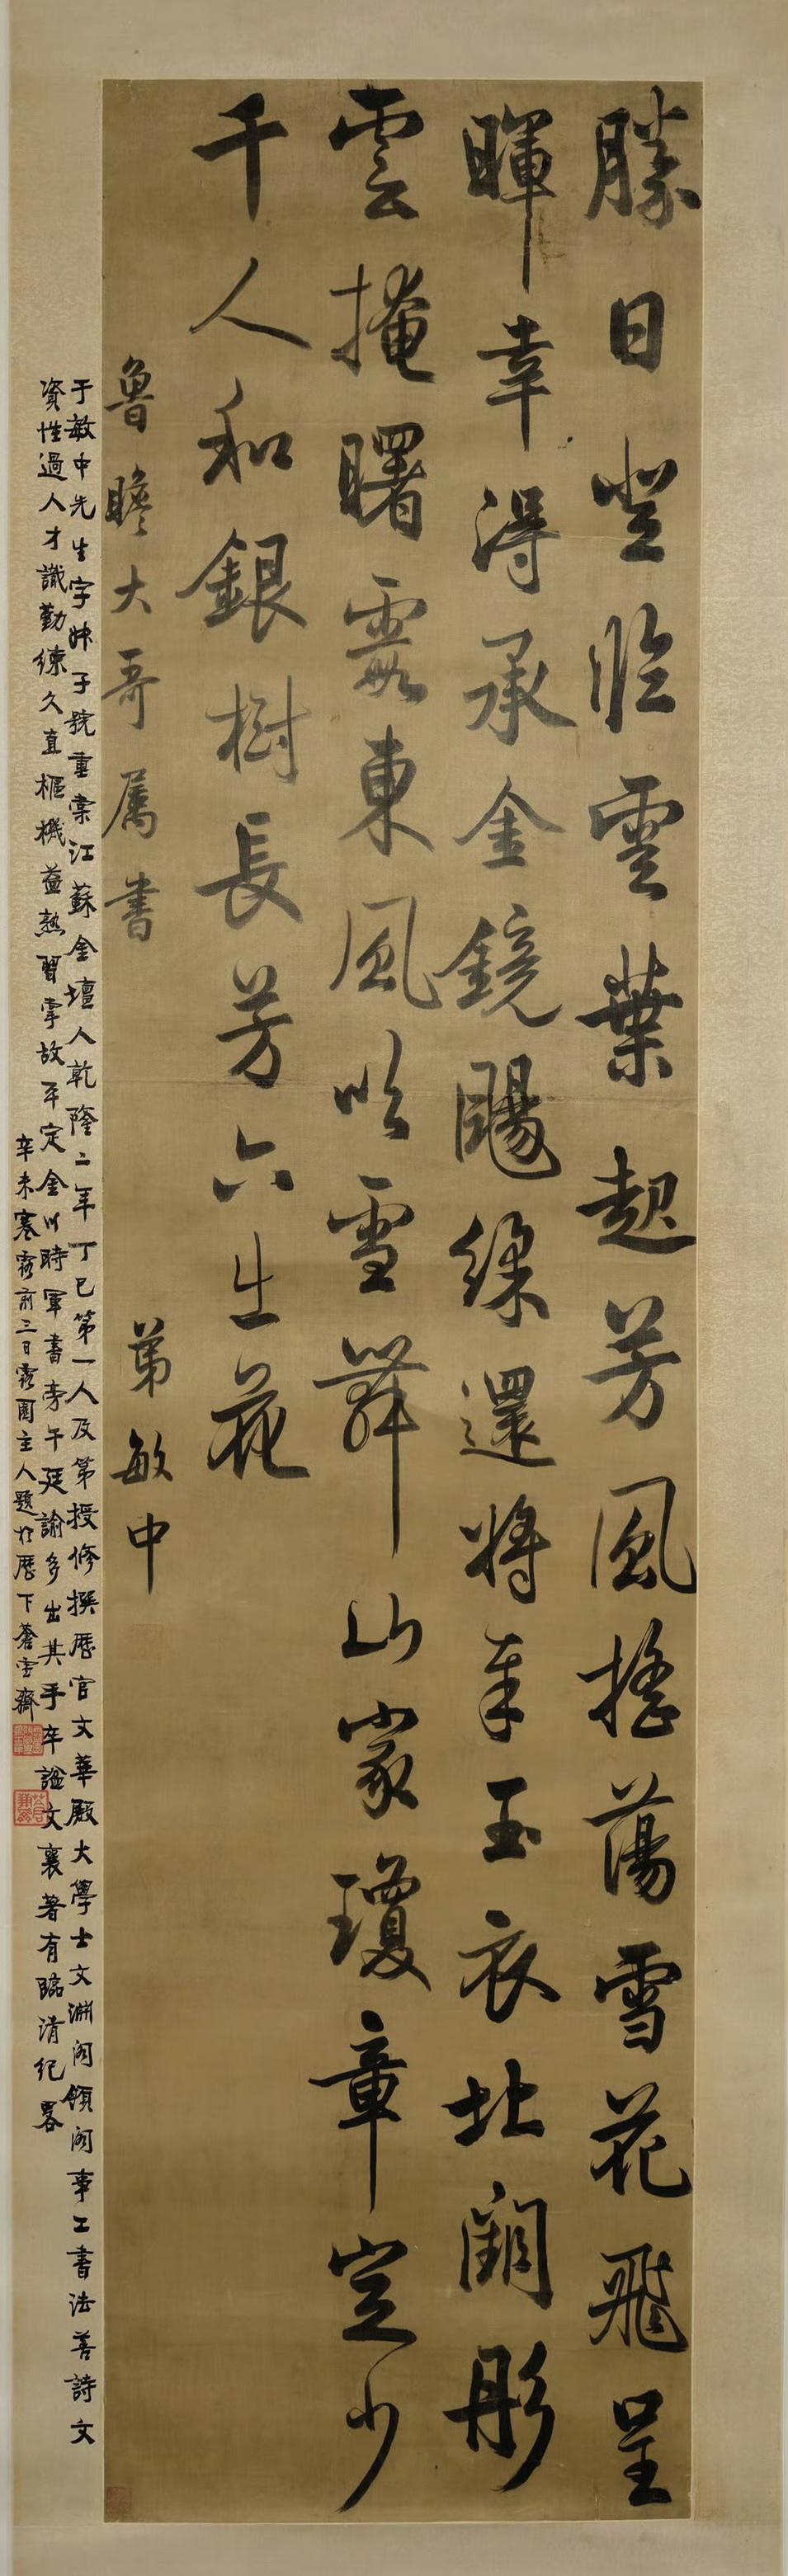 勝日登臨雲葉起芳風搖蕩雪花飛呈
暉幸得承金鏡颺綵還將奉玉衣北闕彤
雲掩曙霞東風吹雪舞山家瓊章定少
千人和銀樹長芳六出花
魯瞻大哥属書
弟敏中
于敏中先生字叔子號重棠江蘇金壇人乾隆二年丁巳第一人及第授修撰歷官文華殿大學士文淵閣領閣事工書法善詩文
資性過人才識勤練久直樞機益熟習掌故平定金川時軍書旁午廷諭多出其手卒諡文襄著有臨清紀畧
辛未寒露前三日露園主人題於歷下蒼雪齋